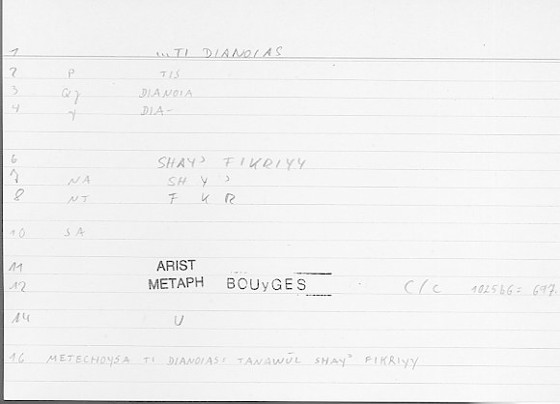 1 ...TI DIANOIAS
2 P TIS
3 Qy DIANOIA
4 y DIA-
6 SHAY' FIKRIYY
7 NA SH Y '
8 NT F K R
10 SA
11 ARIST
12 METAPH BOUyGES C/c 1025b6: 697.
14 U
16 METECHOYSA TI DIANOIAS: TANAWŪL SHAY' FIKRIYY